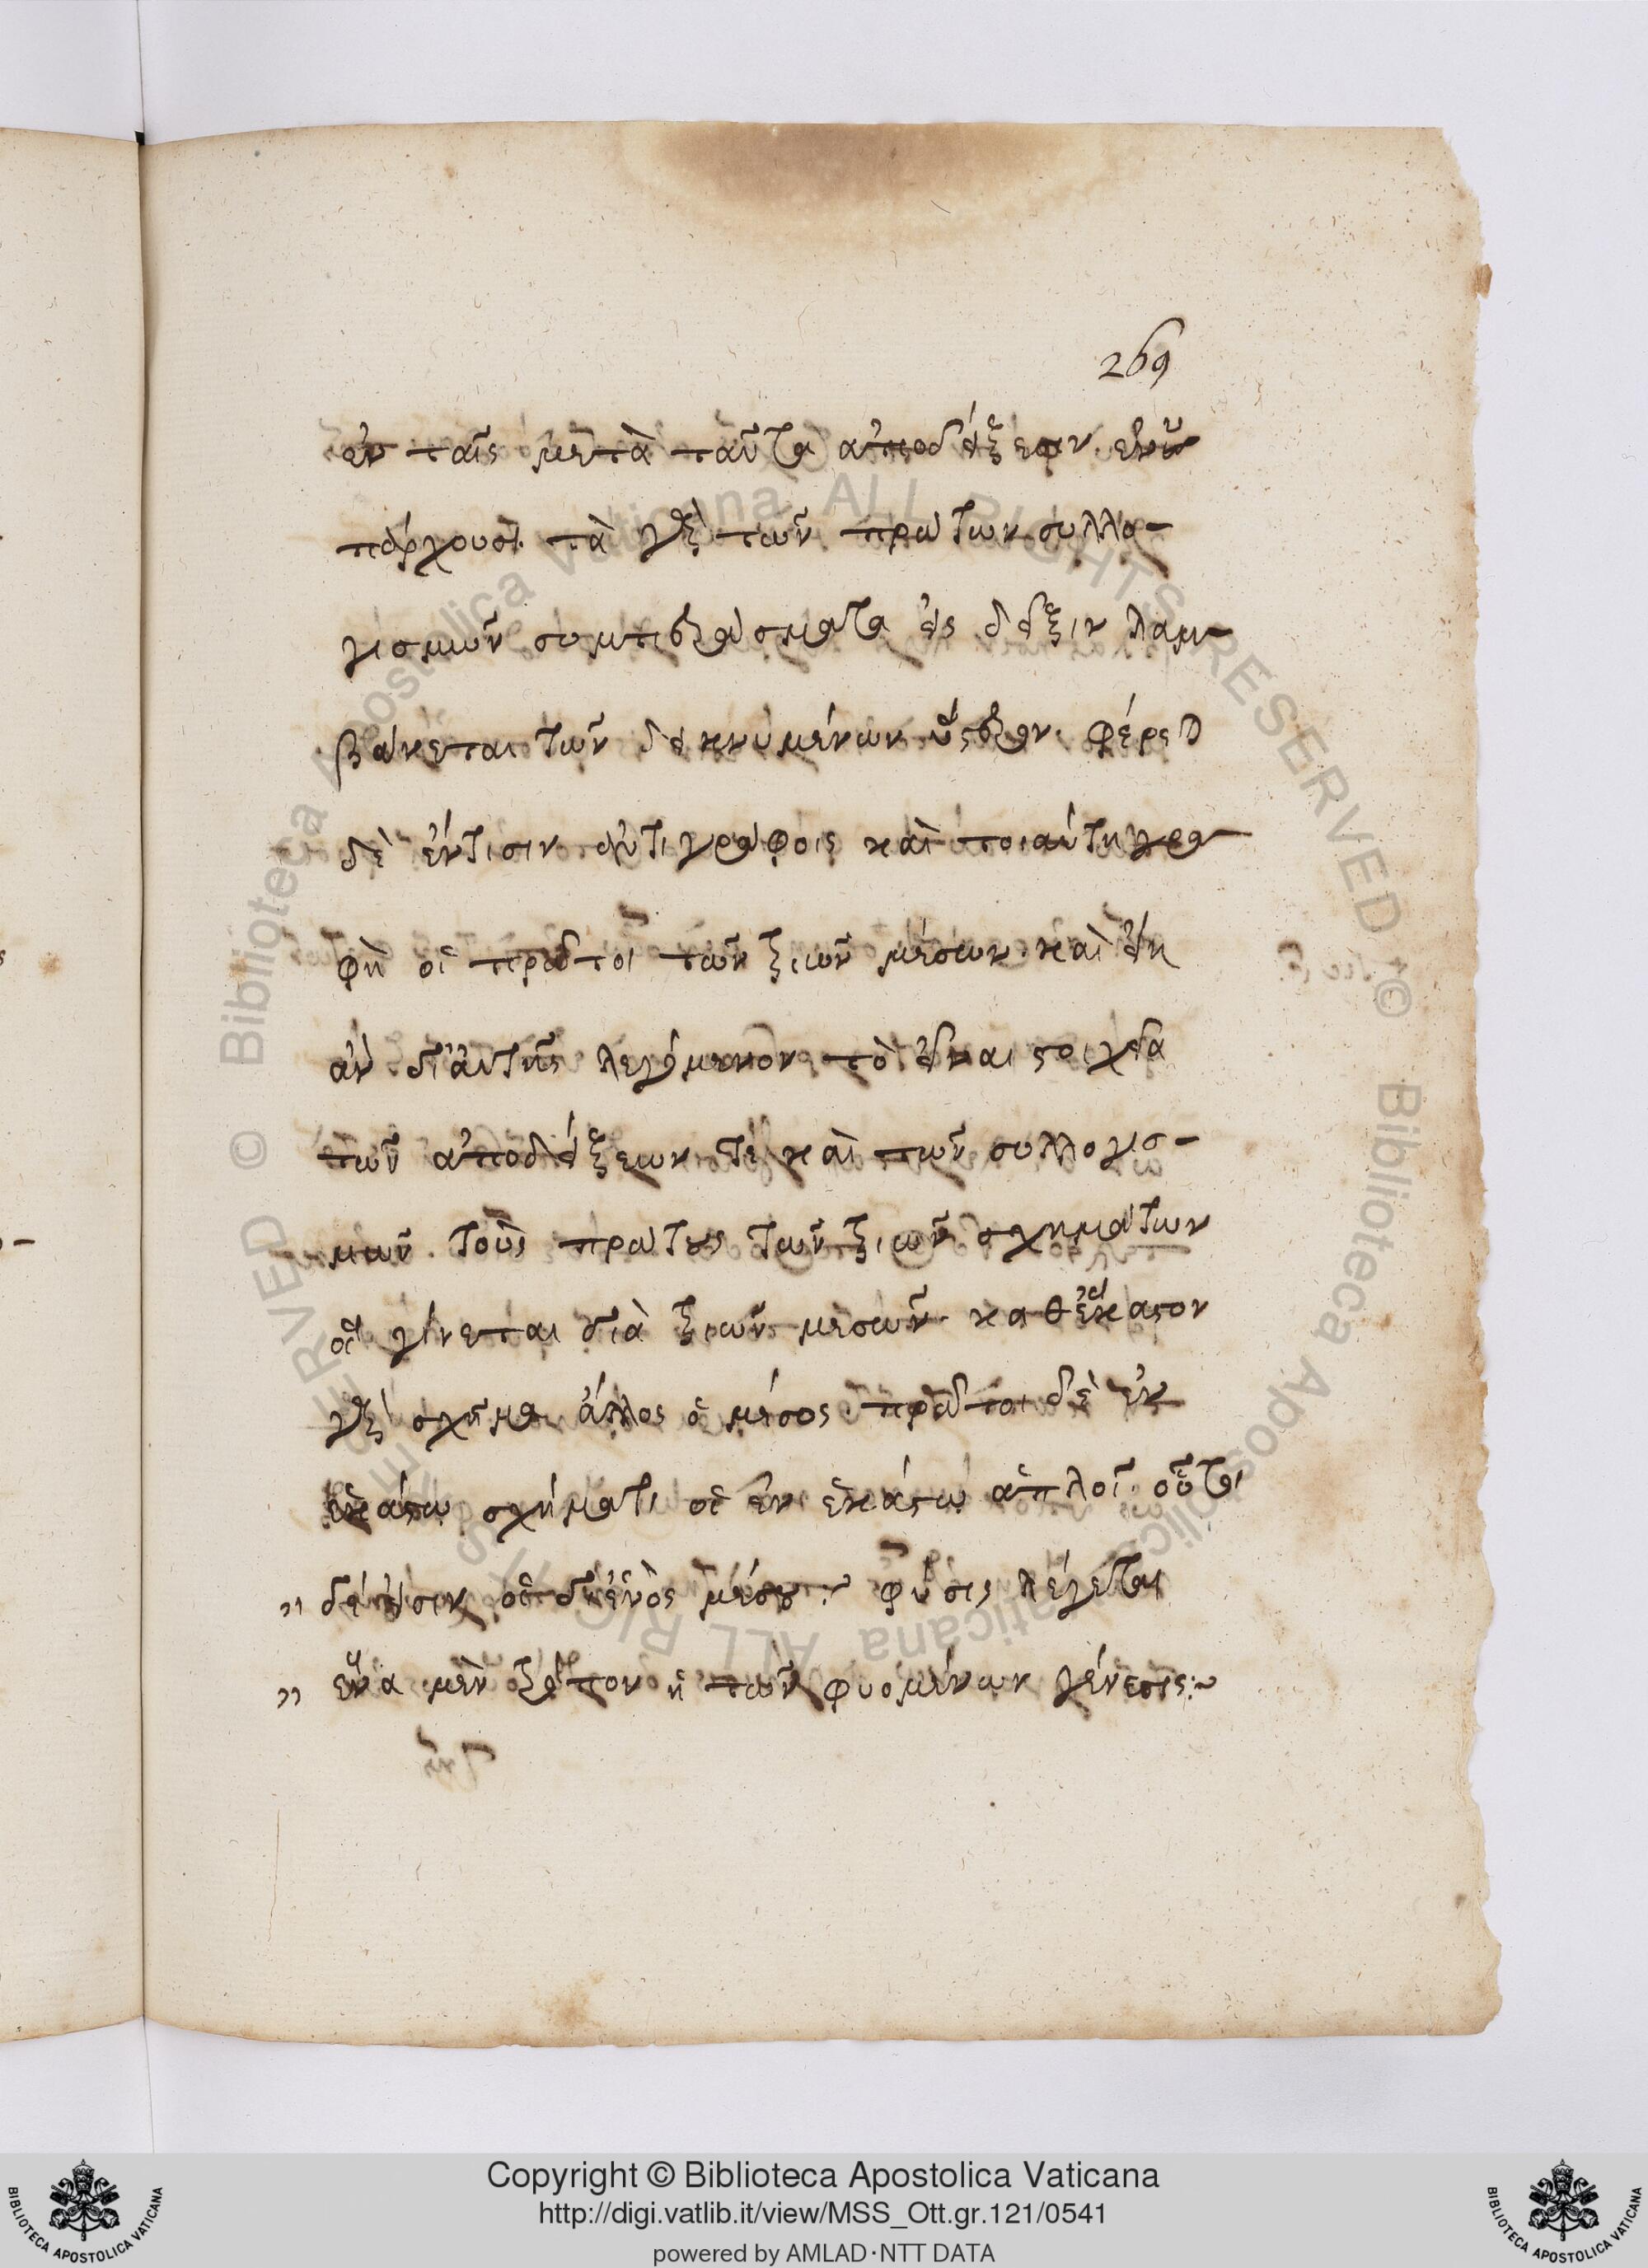 269
ἐν ταῖς μετὰ ταῦτα ἀποδείξεσιν. ἐνυ
πάρχουσι. τὰ γὰρ τῶν πρώτων συλλο-
γισμῶν συμπεράσματα εἰς δεῖξιν λαμ-
βάνεται τῶν δεικνυμένων ὕστερον. φέρεται
δὲ ἔν τισιν ἀντιγράφοις καὶ τοιαύτη γρα
φὴ οἱ πρῶτοι τῶν τριῶν μέσων. καὶ εἴη
ἂν δι' αὐτῆς λεγόμενον τὸ εἶναι στοιχεῖα
τῶν ἀποδείξεων τὲ καὶ τῶν συλλογισ-
μῶν. τοὺς πρώτους τῶν τριῶν σχημάτων
οἳ γίνεται διὰ τριῶν μεσῶν. καθ' ἕκαστον
γὰρ σχῆμα ἄλλος ὁ μέσος. πρῶτοι δὲ ἐν
ἑκάστω σχήματι οἱ ἐν ἑκάστω ἁπλοῖ. οὗτοι
" δέ εἰσιν οἱ δι' ἑνὸς μέσου :~ φύσις λέγεται
" ἕνα μὲν τρόπον ἡ τῶν φυομένων γένεσις:~
Copyright © Biblioteca Apostolica Vaticana
http://digi.vatlib.it/view/MSS_Ott.gr.121/0541
powered by AMLAD·NTT DATA
BIBLIOTECA APOSTOLICA VATICANA
BIBLIOTECA APOSTOLICA VATICANA
© Biblioteca Apostolica Vaticana ALL RIGHTS RESERVED © Biblioteca Apostolica Vaticana ALL RIGHTS RESERVED